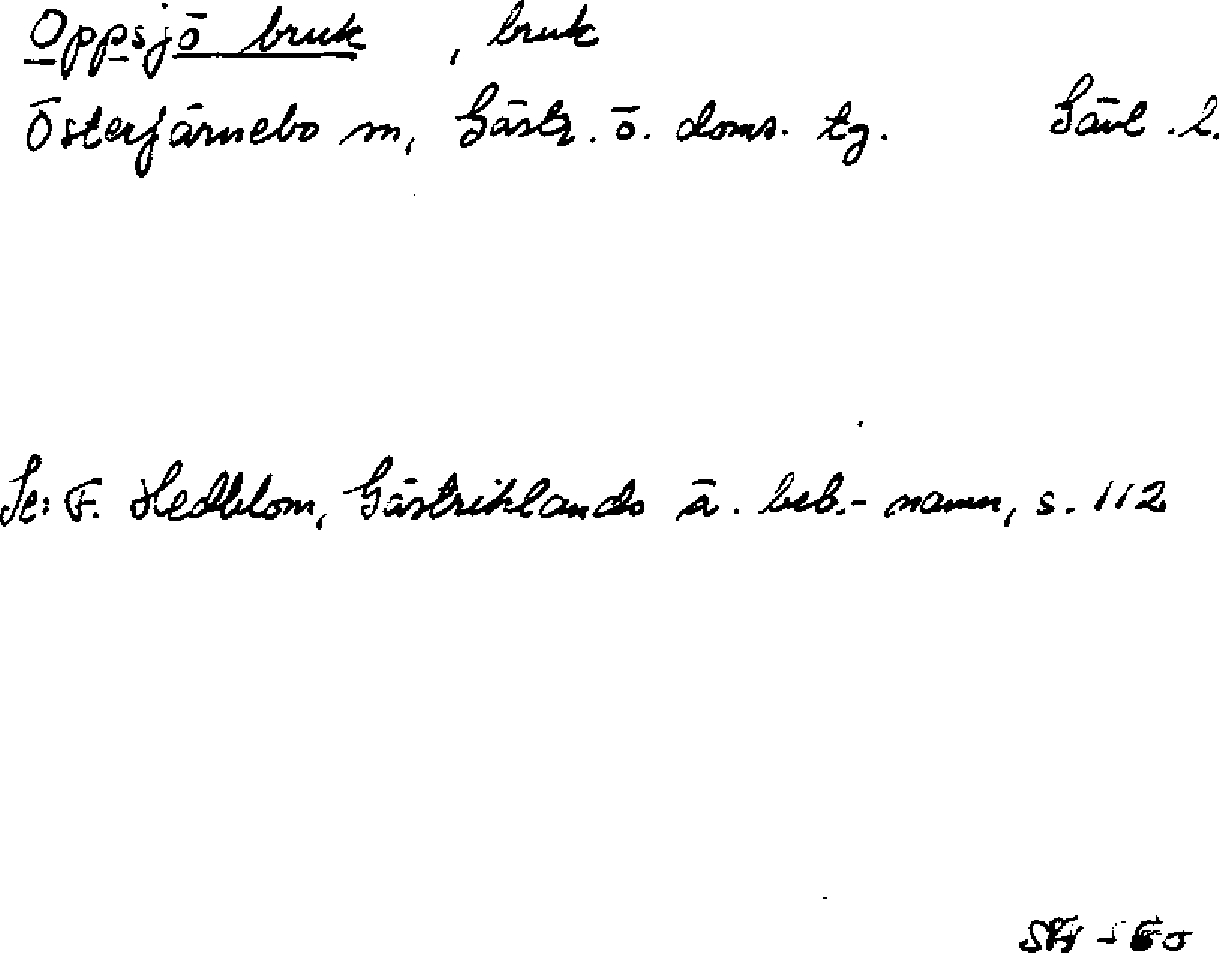 Oppsjö bruk , bruk
Österfärnebo sn, Gästr. ö. doms. tg. Gävl. l.
Se: F. Hedblom, Gästriklands ä. beb.-namn, s. 112